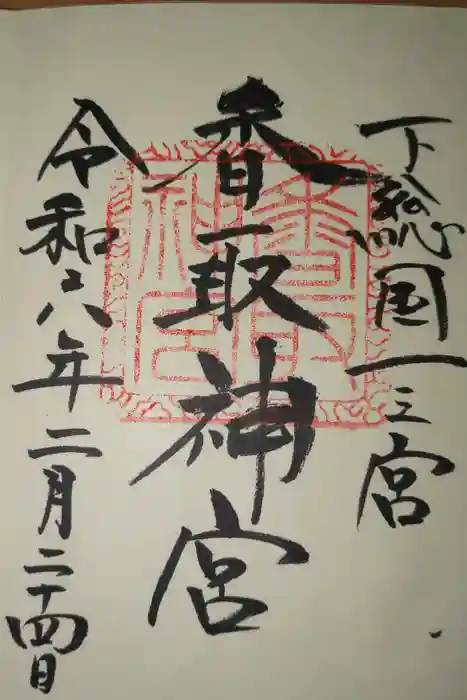 下総国一之宮
香取神宮
令和六年二月二十四日
香取神宮